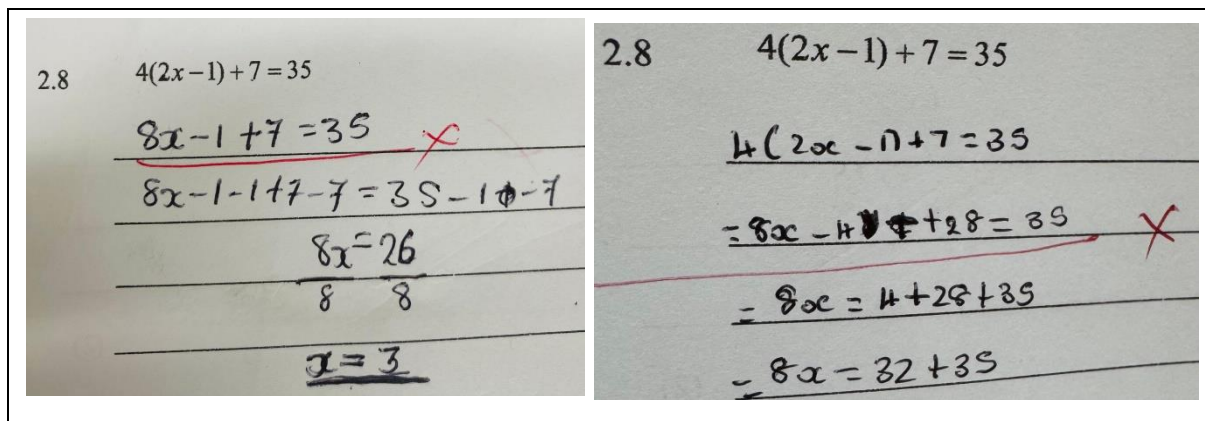 2.8 4(2x−1)+7=35
8x−1+7=35
8x−1−1+7−7=35−1−7
8x=26
8 8
x=3
2.8 4(2x−1)+7=35
4(2x−1)+7=35
=8x−4+28=35
=8x=4+28+35
=8x=32+35